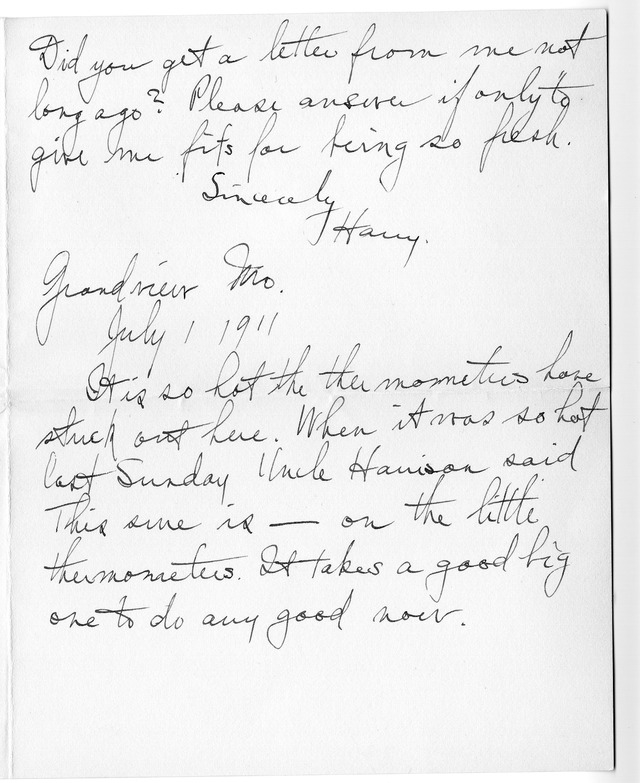 Did you get a letter from me not
long ago? Please answer if only to
give me fits for being so fresh.
Sincerely
Harry.
Grandview Mo.
July 1 1911
It is so hot the thermometers have
stuck out here. When it was so hot
last Sunday Uncle Harrison said
This sure is — on the little
thermometers. It takes a good big
one to do any good now.